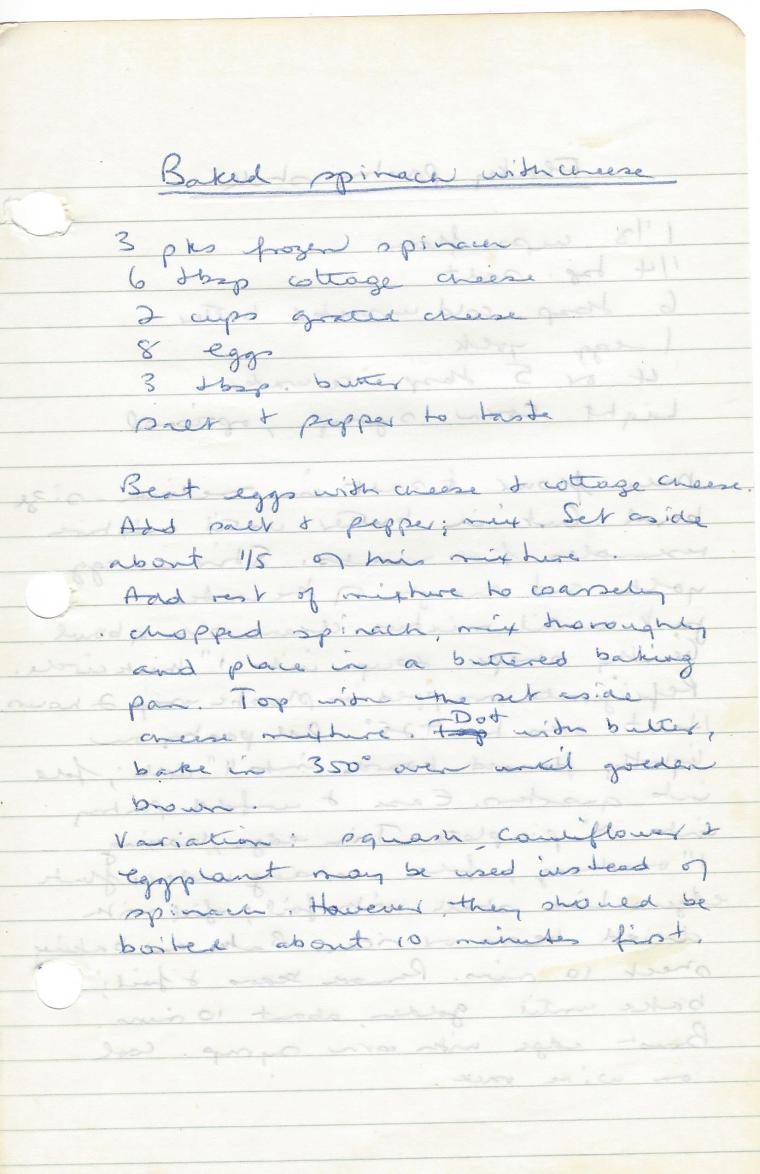 Baked spinach with cheese
3 pks frozen spinach
6 tbsp cottage cheese
2 cups grated cheese
8 eggs
3 tbsp. butter
salt + pepper to taste
Beat eggs with cheese + cottage cheese.
Add salt + pepper; mix. Set aside
about 1/5 of this mixture.
Add rest of mixture to coarsely
chopped spinach, mix thoroughly
and place in a buttered baking
pan. Top with the set aside
cheese mixture. Dot with butter,
bake in 350° oven until golden
brown.
Variation: squash, cauliflower +
eggplant may be used instead of
spinach. However, they should be
boiled about 10 minutes first.